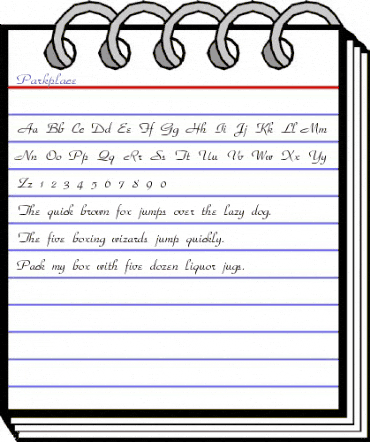 Parkplace
Aa Bb Cc Dd Ee Ff Gg Hh Ii Jj Kk Ll Mm
Nn Oo Pp Qq Rr Ss Tt Uu Vv Ww Xx Yy
Zz 1 2 3 4 5 6 7 8 9 0
The quick brown fox jumps over the lazy dog.
The five boxing wizards jump quickly.
Pack my box with five dozen liquor jugs.